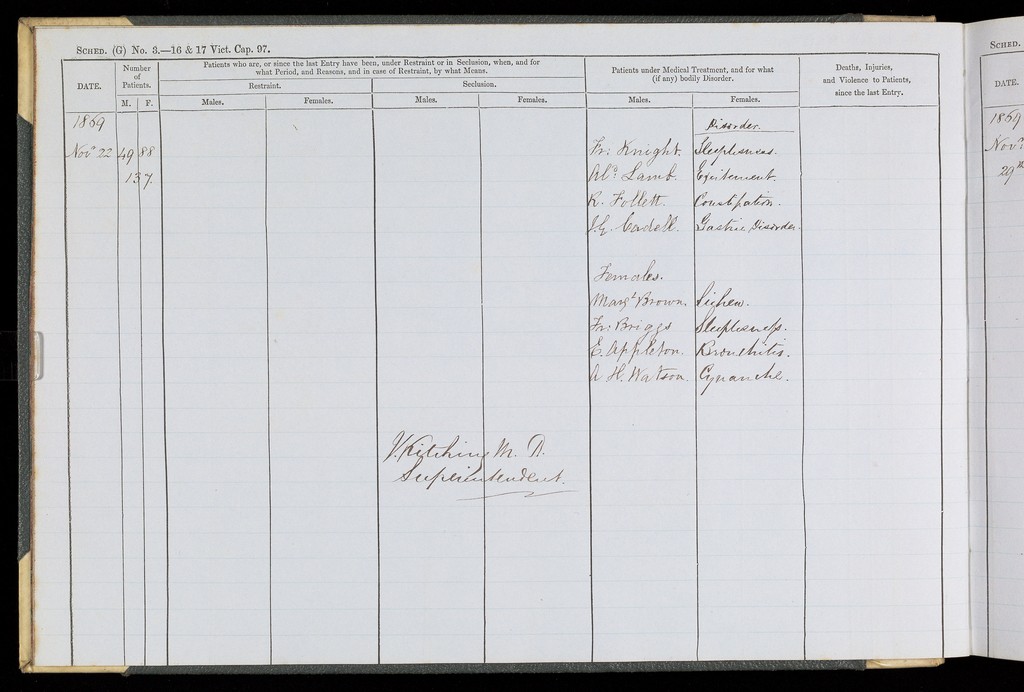 SCHED. (G) No. 3.—16 & 17 Vict. Cap. 97.
DATE.
Number of Patients.
M. F.
Patients who are, or since the last Entry have been, under Restraint or in Seclusion, when, and for
what Period, and Reasons, and in case of Restraint, by what Means.
Restraint. Seclusion.
Males. Females. Males. Females.
Patients under Medical Treatment, and for what
(if any) bodily Disorder.
Males. Females.
Deaths, Injuries,
and Violence to Patients,
since the last Entry.
1869 Disorder.
Novr 22 49 88 Fr: Knight. Sleeplessness.
137. Alr. Lamb. Excitement.
R. Follett. Constipation.
J.G. Cadell. Gastric Disorder.
Females.
Margt Brown. Lichen.
Fr: Briggs Sleeplessness.
E. Appleton. Bronchitis.
A H. Watson. Cynanche.
J. Kitching M. D.
Superintendent.
SCHED.
DATE.
1869
Novr
29th